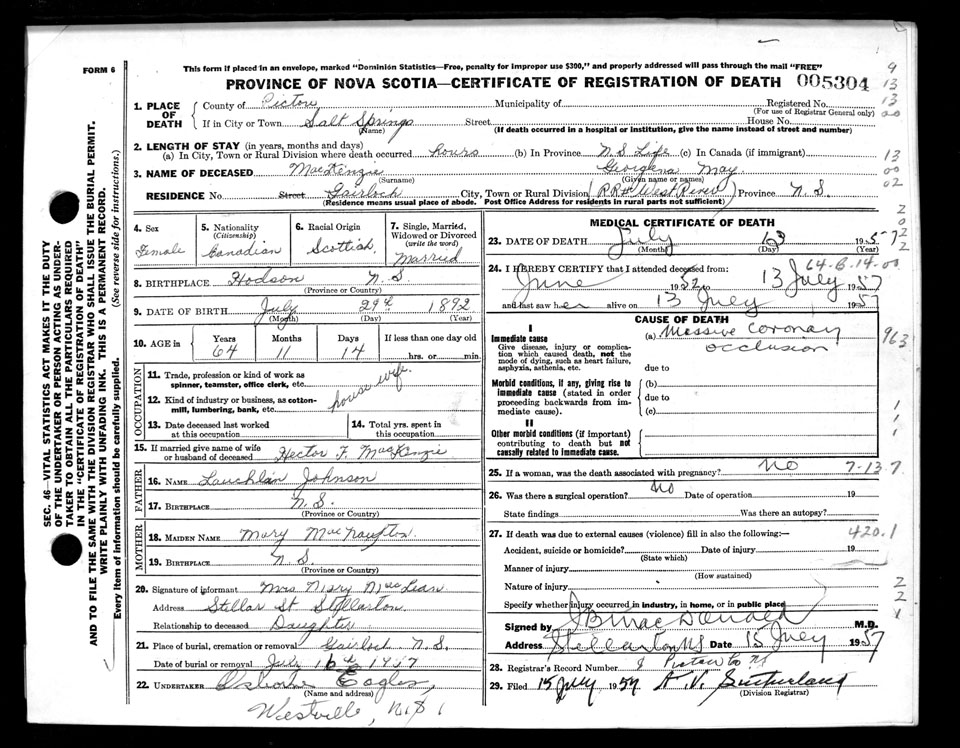 FORM 6
This form if placed in an envelope, marked "Dominion Statistics—Free, penalty for improper use $300," and properly addressed will pass through the mail "FREE"
PROVINCE OF NOVA SCOTIA—CERTIFICATE OF REGISTRATION OF DEATH 005304
SEC. 46—VITAL STATISTICS ACT MAKES IT THE DUTY
OF THE UNDERTAKER OR PERSON ACTING AS UNDER-
TAKER TO OBTAIN ALL THE PARTICULARS REQUIRED
IN THE "CERTIFICATE OF REGISTRATION OF DEATH"
AND TO FILE THE SAME WITH THE DIVISION REGISTRAR WHO SHALL ISSUE THE BURIAL PERMIT.
WRITE PLAINLY WITH UNFADING INK. THIS IS A PERMANENT RECORD.
Every item of information should be carefully supplied. (See reverse side for instructions.)
1. PLACE OF DEATH
County of Pictou Municipality of Registered No.
(For use of Registrar General only)
If in City or Town Salt Springs Street House No.
(Name) (If death occurred in a hospital or institution, give the name instead of street and number)
2. LENGTH OF STAY (in years, months and days)
(a) In City, Town or Rural Division where death occurred hours (b) In Province N.S Life (c) In Canada (if immigrant)
3. NAME OF DECEASED MacKenzie Georgena May
(Surname) (Given name or names)
RESIDENCE No. Street Gairloch City, Town or Rural Division (West River) Province N.S.
(Residence means usual place of abode. Post Office Address for residents in rural parts not sufficient)
4. Sex
Female
5. Nationality
(Citizenship)
Canadian
6. Racial Origin
Scottish
7. Single, Married,
Widowed or Divorced
(write the word)
Married
8. BIRTHPLACE Hodson N S
(Province or Country)
9. DATE OF BIRTH July 29th 1892
(Month) (Day) (Year)
10. AGE in
Years Months Days If less than one day old
64 11 14 hrs. or min.
OCCUPATION
11. Trade, profession or kind of work as
spinner, teamster, office clerk, etc.
house wife.
12. Kind of industry or business, as cotton-
mill, lumbering, bank, etc.
13. Date deceased last worked
at this occupation
14. Total yrs. spent in
this occupation
15. If married give name of wife
or husband of deceased Hector F. MacKenzie
FATHER
16. NAME Lauchlin Johnson
17. BIRTHPLACE N.S.
(Province or Country)
MOTHER
18. MAIDEN NAME Mary MacNaughton
19. BIRTHPLACE N.S.
(Province or Country)
20. Signature of informant Mrs MacLean
Address Stellar St Stellarton
Relationship to deceased Daughter
21. Place of burial, cremation or removal Gairloch N.S.
Date of burial or removal July 16th 1957
22. UNDERTAKER Osborne Eagles,
(Name and address)
Westville, N.S
MEDICAL CERTIFICATE OF DEATH
23. DATE OF DEATH July 13 1957
(Month) (Day) (Year)
64-B-14-00
24. I HEREBY CERTIFY that I attended deceased from:
June 1952 to 13 July 1957
and last saw her alive on 13 July 1957
CAUSE OF DEATH
I
Immediate cause
Give disease, injury or complica-
tion which caused death, not the
mode of dying, such as heart failure,
asphyxia, asthenia, etc.
(a) Massive Coronary
occlusion
due to
Morbid conditions, if any, giving rise to
immediate cause (stated in order
proceeding backwards from im-
mediate cause).
(b)
due to
(c)
II
Other morbid conditions (if important)
contributing to death but not
causally related to immediate cause.
25. If a woman, was the death associated with pregnancy? No 7-13 7
26. Was there a surgical operation? No Date of operation 19
State findings Was there an autopsy?
27. If death was due to external causes (violence) fill in also the following:— 420.1
Accident, suicide or homicide? Date of injury 19
(State which)
Manner of injury
(How sustained)
Nature of injury
Specify whether injury occurred in industry, in home, or in public place
Signed by J B MacDonald M.D.
Address Stellarton NS Date 15 July 1957
28. Registrar's Record Number 8 Pictou Co
29. Filed 15 July 1957 A. V. Sutherland
(Division Registrar)
9
13
13
00
13
00
02
2
0
2
2
963
1
1
1
2
2
1